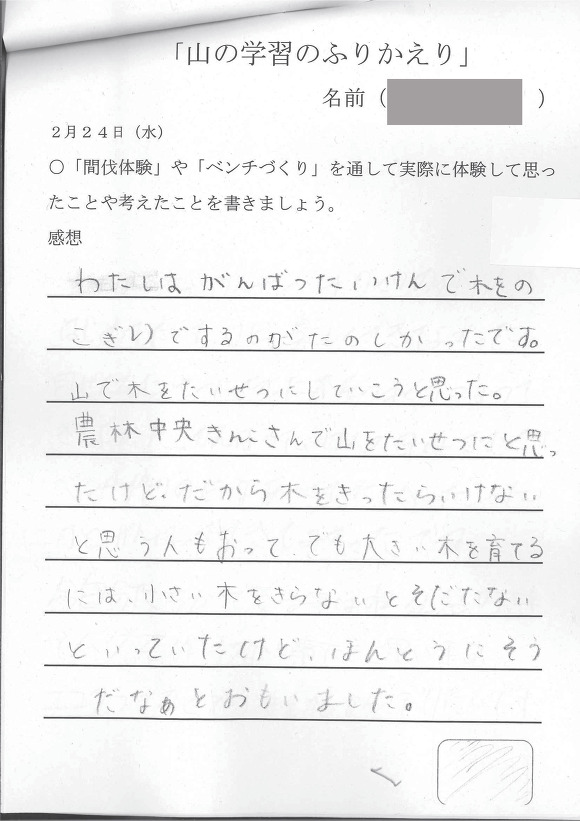 「山の学習のふりかえり」
名前（ ）
２月２４日（水）
〇「間伐体験」や「ベンチづくり」を通して実際に体験して思っ
たことや考えたことを書きましょう。
感想
わたしはがんばったいけんで木をの
こぎりでするのがたのしかったです。
山で木をたいせつにしていこうと思った。
農林中央きんこさんで山をたいせつにと思っ
たけど、だから木をきったらいけない
と思う人もおって、でも大きい木を育てる
には、小さい木をきらないとそだたない
といっていたけど、ほんとうにそう
だなぁとおもいました。